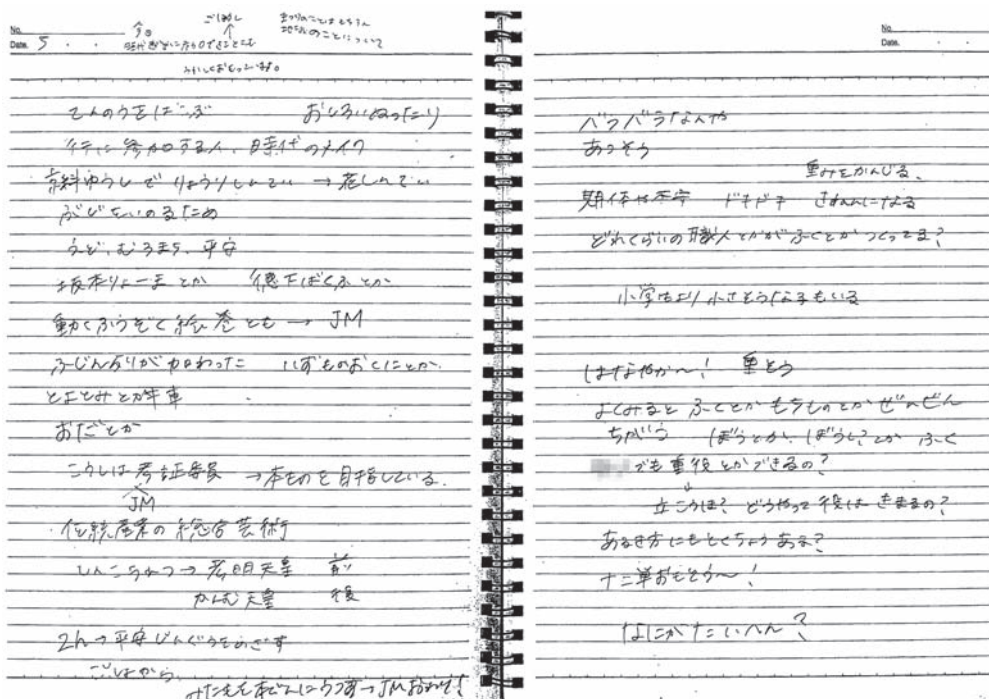 No.
Date. 5 ・ ・
今日
ごしょめし
まつりのことはもちろん
地いきのことについて
時代
うれしくおもっています。
てんのうをはこぶ おしろいぬったり
行に参加する人、時代のメイク
→
ぶじをいのるため
えど、むろまち、平安
坂本りょー玉とか 徳下ばくふとか
動くふうぞく絵巻とも → JM
ふじん列が加わった いずものおくにとか
とよとみとか牛車
おだとか
こうしは考証委員 →本ものを目指している。
JM
伝統産業の総合芸術
しんこうれつ→考明天皇 前
かんむ天皇 後
2人→平安じんぐうをめざす
ごしょから
みたまを本でんにうつす→JMおわり!
No.
Date. ・ ・
バラバラなんや
あつそう
重みをかんじる、
期待や不安 ドキドキ
どれくらいの職人とかがふくとかつくってる?
小学生より小さそうな子もいる
はなやか〜! 重そう
よくみると ふくとかもちものとかぜんぜん
ちがう ぼうとか、ぼうしとか ふく
でも重役とかできるの?
立こうほ? どうやって役はきまるの?
あるき方にもとくちょうある?
十二単おもそう〜!
なにがたいへん?